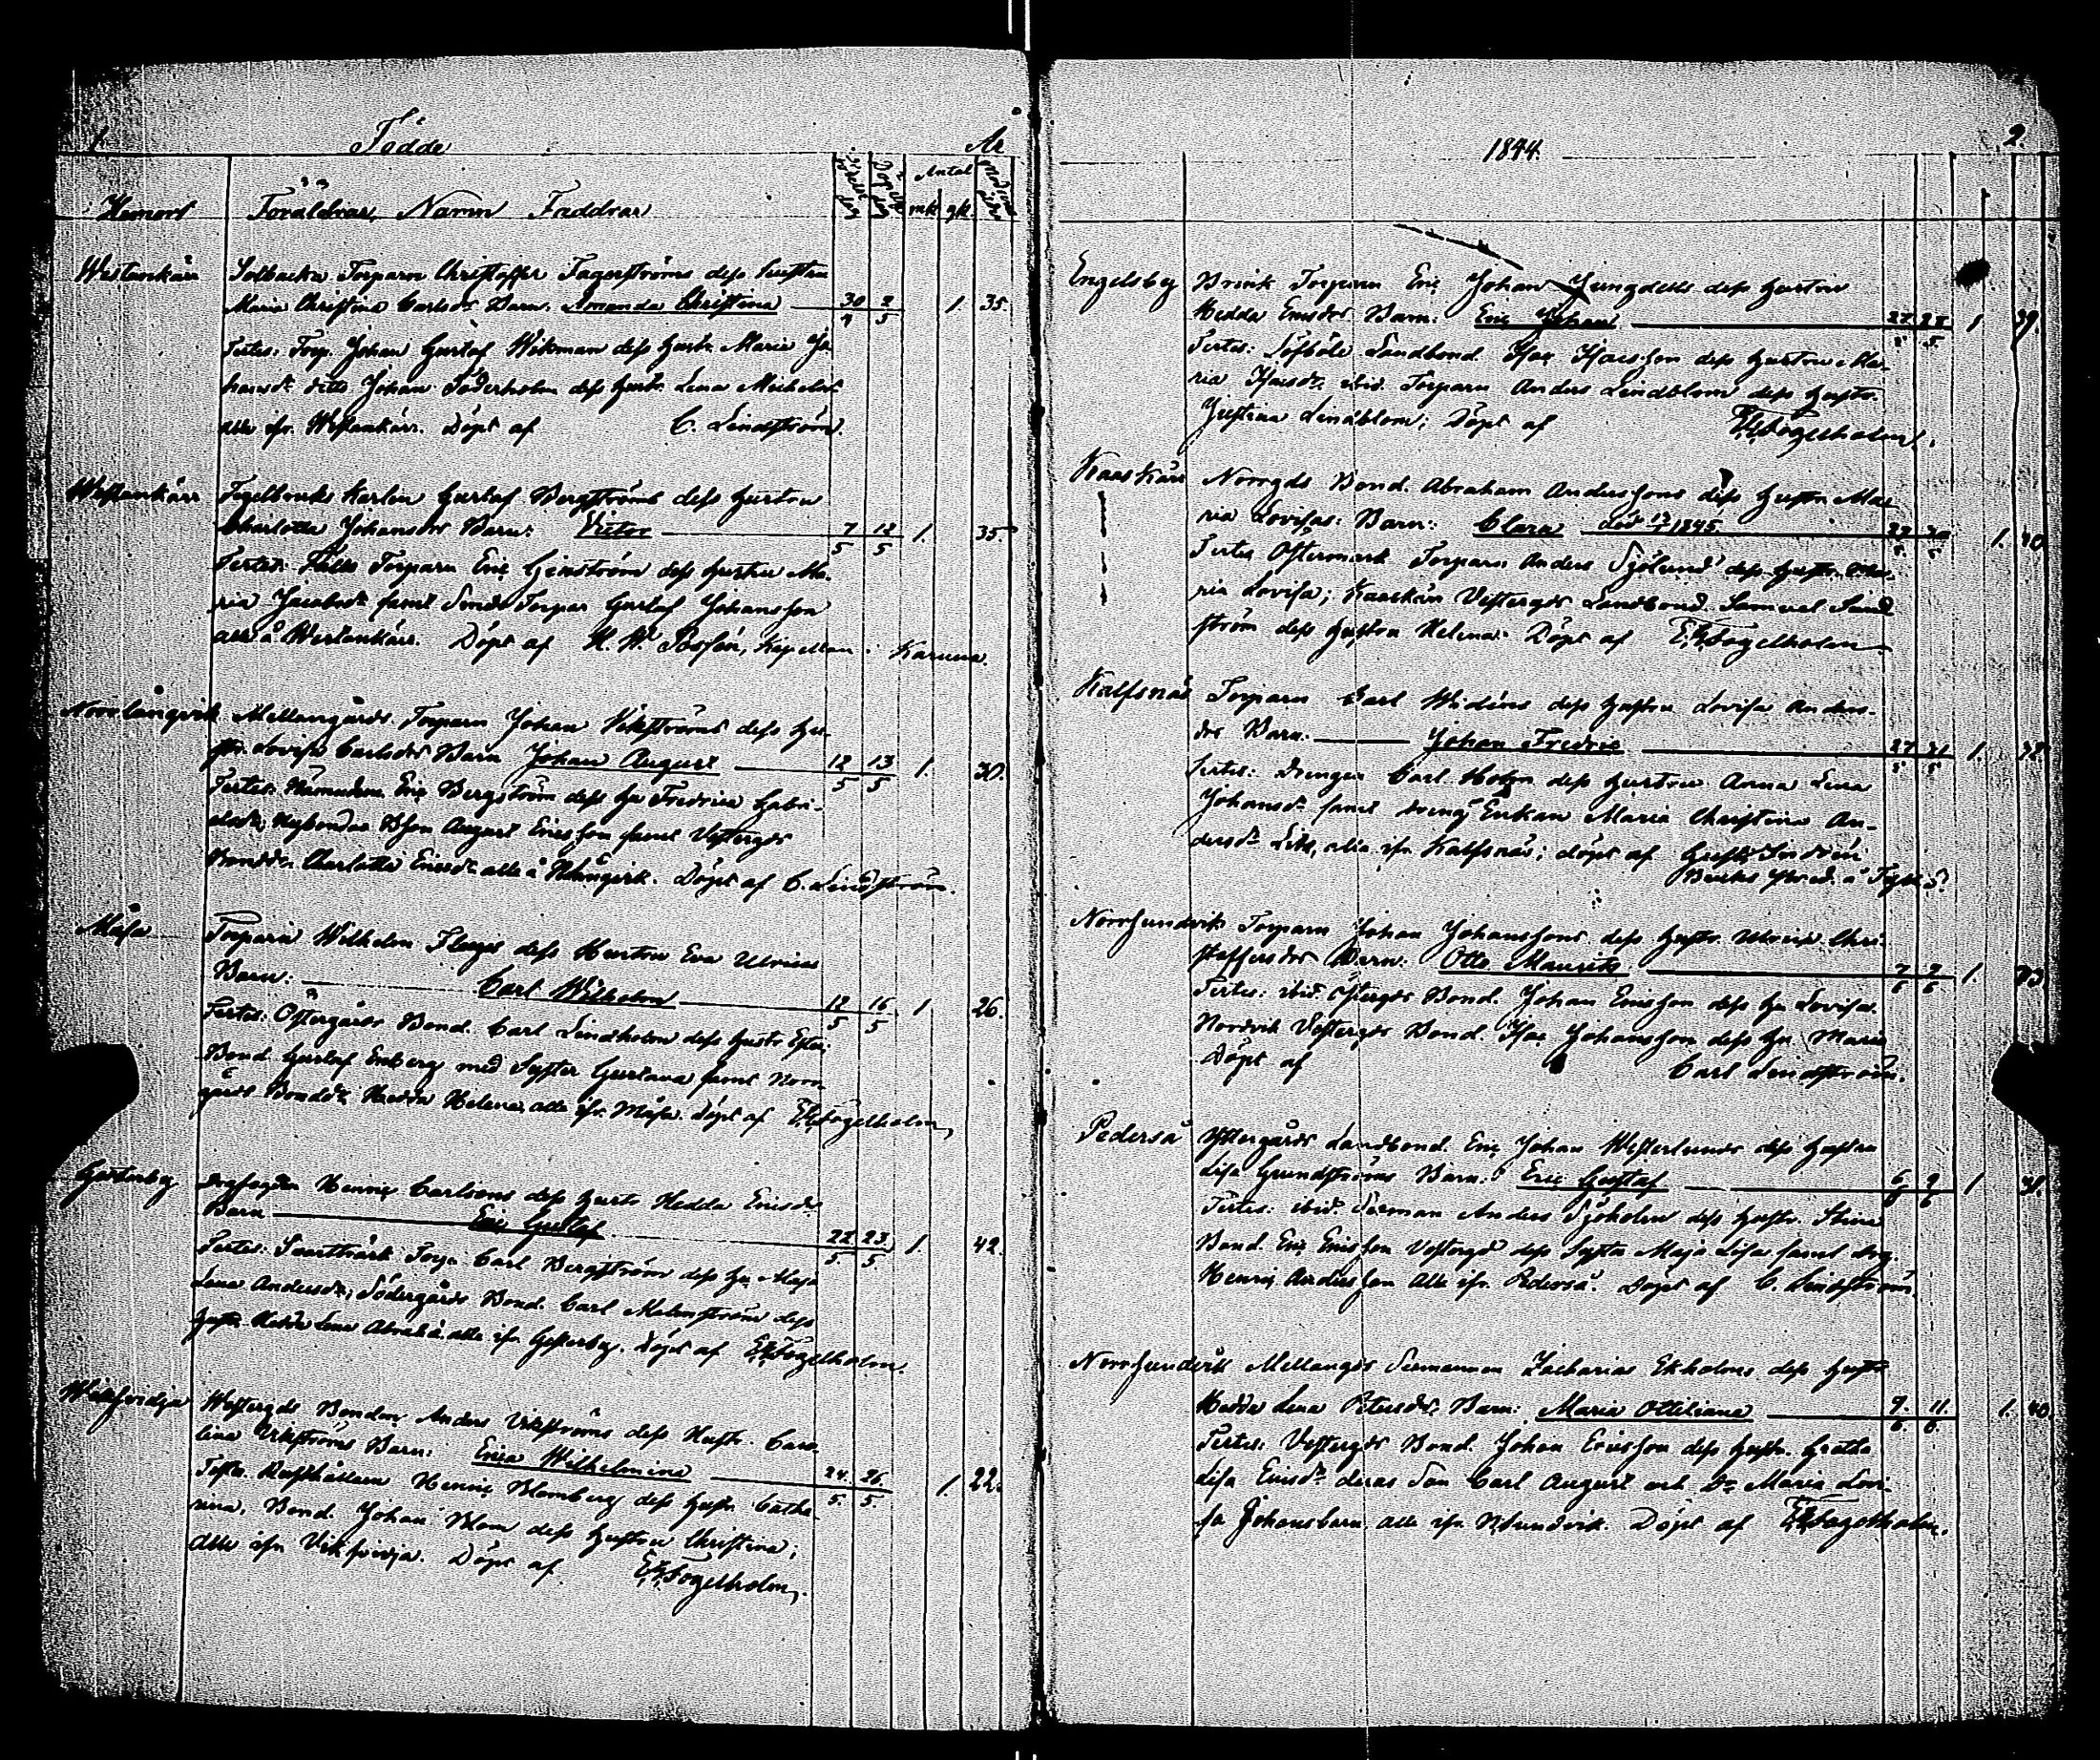 1. Födde År
Hemort Föräldrar, Namn Faddrar
Födelse dag Döpelse dag Antal mk qk Modrens ålder
Westankärr Solbacka Torparn Christoffer Fagerströms dess hustru
Maria Christina Carlsdr Barn: Amanda Christina 30/4 2/5 1. 35.
Testes: Torp. Johan Gustaf Wikman dess hustr. Maria Jo-
hansdr ditto Johan Söderholm dess hustr. Lena Michelsdr
alla ifr. Westankärr. Döpt af C. Lindström.
Westankärr Tegelbruks Karlen Gustaf Bergströms dess hustru
Charlotta Johansdrs Barn: Victor 7/5 12/5 1. 35.
Testes: Torparn Eric dess hustru Ma-
ria Jacobsdr samt Torpar Gustaf Johansson
alla å Westankärr. Döpt af Kapellan i Karuna.
Norrlångvik Mellangårds Torparn Johan Vikströms dess hu-
str. Lovisa Carlsdrs Barn Johan August 12/5 13/5 1. 30.
Testes: Nämndem. Eric Bergström dess hu Fredrica Gabri-
elsdr, August Ericsson samt Vestergds
Bondd. Charlotta Ericsdr alla å Nlångvik. Döpt af C. Lindström.
Måsa Torparn Wilhelm dess Hustru Eva Ulricas
Barn: Carl Wilhelm 12/5 16/5 1 26.
Testes: Östergårds Bond. Carl Lindholm dess hustr
Bond. Gustaf Enberg med Syster Gustava samt Norr-
gårds Bondd. Hedda Helena, alla ifr. Måsa. Döpt af E. G. Fogelholm,
Henric Carlsons dess hustr Hedda Ericsdr
Barn Eric Gustaf 22/5 23/5 1. 42.
Testes: Torp. Carl Bergström dess hu Maja
Lena Andersdr; Södergårds Bond. Carl Malmström dess
hustr. Hedda Lena alla ifr. Döpt af E. G. Fogelholm.
Westergds Bonden Anders Vikströms dess Hustr. Caro-
lina Vikströms Barn: Erica Wilhelmina 24/5. 26/5. 1. 22.
Testes. Rusthållaren Henric Blomberg dess hustr. Catha-
rina, Bond. Johan Blom dess hustru Christina;
Alla ifr. Döpt af E. G. Fogelholm.
1844. 2.
Engelsby Brink Torparn Eric Johan Ljungdells dess hustru
Hedda Ericsdrs Barn: Eric Johan 1 39.
Testes: Löfböle Landbond. Isac Isacsson dess hustru Ma-
ria Isacsdr, ibid. Torparn Anders Lindblom dess hustr.
Justina Lindblom; Döpt af E. G. Fogelholm.
Kaaskärr Norrgds Bond. Abraham Anderssons dess hustru Ma-
ria Lovisas: Barn: Clara 1845. 1. 40
Testes Östermark Torparn Anders Sjölund dess hustr. Ma-
ria Lovisa; Kaaskärr Vestergds Landbond. Samuel Sand-
ström dess hustru Helena. Döpt af E. G. Fogelholm
Kalfsnäs Torparn Carl Widéns dess hustru Lovisa Anders-
drs Barn: Johan Fredric 1.
Testes: drengen Carl Holm dess hustru Anna Lena
Johansdr samt dreng Enkan Maria Christina An-
dersdr alla ifr Kalfsnäs; döpt af
Norrsundvik Torparn Johan Johanssons dess hustr. Ulrica Chri-
stoffersdrs Barn: Otto Maurits 7/6 9/6 1. 33
Testes: ibid. Östergds Bond. Johan Ericsson dess hu Lovisa.
Nordvik Vestergds Bond. Isac Johansson dess hu. Maria
Döpt af Carl Lindström.
Pederså Ystergårds Landbond. Eric Johan Westerlunds dess hustru
Lisa Grundströms Barn: Eric Gustaf 6/6 9/6 1 31.
Testes: ibid. Seeman Anders Sjöholm dess hustr. Stina
Bond. Eric Ericsson Vestergd dess Syster Maja Lisa samt drg.
Henric Andersson Alla ifr. Pederså. Döpt af C. Lindström.
Norrsundvik Mellangds Seemannen Zacharias Ekholms dess hustr
Hedda Lena Petersdr. Barn: Maria Ottiliana 9/6. 11/6. 1. 40.
Testes: Vestergds Bond. Johan Ericsson dess hustr. Gretha
Lisa Ericsdr deras Son Carl August och Dr Maria Lovi-
sa Johansbarn. alla ifr. N.Sundvik. Döpt af E. G. Fogelholm.